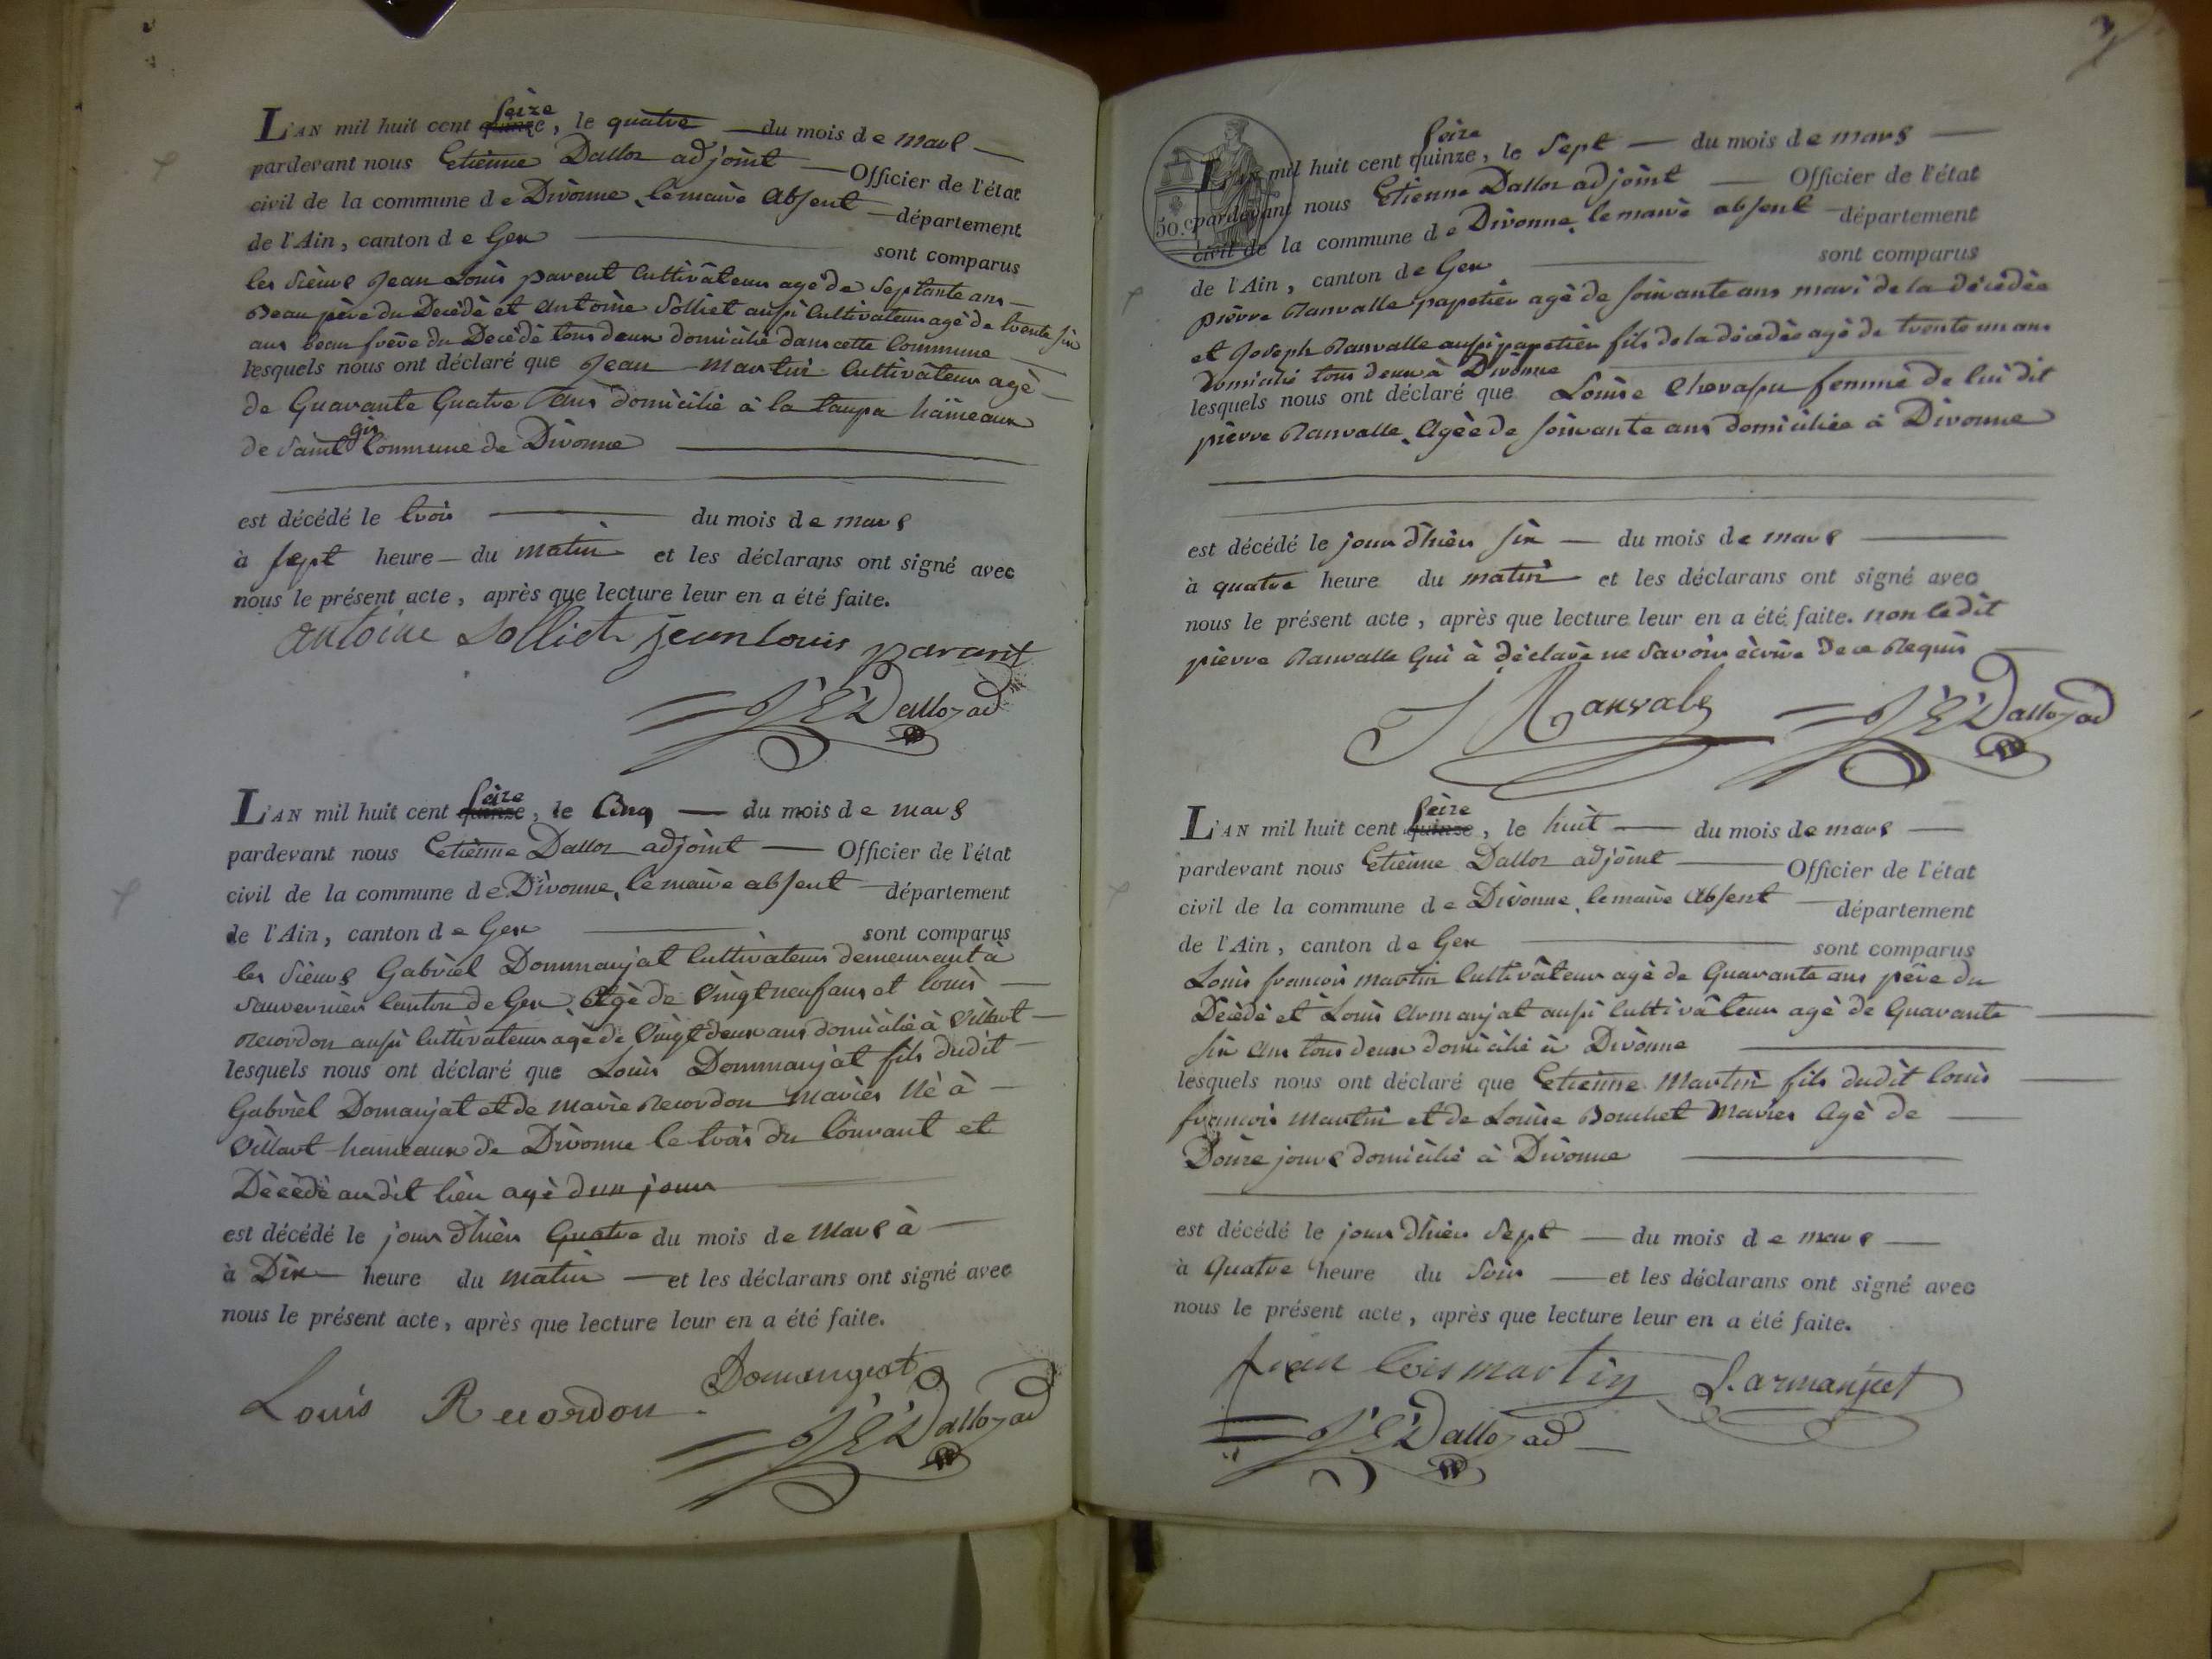 L'AN mil huit cent quinze seize, le quatre du mois de mars
pardevant nous Etienne Dalloz adjoint Officier de l'état
civil de la commune de Divonne, le maire absent département
de l'Ain, canton de Gex sont comparus
les sieurs Jean Louis parent Cultivateur agé de Septante ans
Beau père du Décédé et Antoine Solliet aussi Cultivateur agé de trente six
ans beau frère du Décédé tous deux domicilié dans cette Commune
lesquels nous ont déclaré que Jean Martin Cultivateur agé
de Quarante Quatre ans domicilié à la taupa hameaux
de Saint gix Commune de Divonne
est décédé le trois du mois de mars
à sept heure du matin et les déclarans ont signé avec
nous le présent acte, après que lecture leur en a été faite.
antoine Solliet jean louis parant
J E Dalloz ad
L'AN mil huit cent quinze seize, le Cinq du mois de mars
pardevant nous Etienne Dalloz adjoint Officier de l'état
civil de la commune de Divonne, le maire absent département
de l'Ain, canton de Gex sont comparus
les sieurs Gabriel Dommanjat Cultivateur demeurant à
Sauvernier Canton de Gex Agé de Vingt neuf ans et louis
Recordon aussi Cultivateur agé de Vingt deux ans domicilié à Villart
lesquels nous ont déclaré que Louis Dommanjat fils dudit
Gabriel Domanjat et de Marie Recordon Mariés Né à
Villart hameaux de Divonne le trois du Courant et
Décédé audit lieu agé dun jour
est décédé le jour d'hier Quatre du mois de Mars à
à Dix heure du matin et les déclarans ont signé avec
nous le présent acte, après que lecture leur en a été faite.
Domengeat
Louis Recordon
J E Dalloz ad
3
50. c
L'AN mil huit cent quinze seize, le Sept du mois de mars
pardevant nous Etienne Dalloz adjoint Officier de l'état
civil de la commune de Divonne, le maire absent département
de l'Ain, canton de Gex sont comparus
pierre Ranvalle papetier agé de soixante ans mari de la décédée
et Joseph Ranvalle aussi papetier fils de la décédée agé de trente un ans
Domicilié tous deux à Divonne
lesquels nous ont déclaré que Louise Chevassu femme de lui dit
pierre Ranvalle, Agée de soixante ans domiciliée à Divonne
est décédé le jour d'hier six du mois de mars
à quatre heure du matin et les déclarans ont signé avec
nous le présent acte, après que lecture leur en a été faite. non le dit
pierre Ranvalle Qui à déclaré ne Savoir écrire de ce Requis
J Ranvale J E Dalloz ad
L'AN mil huit cent quinze seize, le huit du mois de mars
pardevant nous Etienne Dalloz adjoint Officier de l'état
civil de la commune de Divonne, le maire Absent département
de l'Ain, canton de Gex sont comparus
Louis francois Martin Cultivateur agé de Quarante ans père du
Décédé et Louis Armanjat aussi Cultivateur agé de Quarante
six ans tous deux domicilié à Divonne
lesquels nous ont déclaré que Etienne Martin fils dudit louis
francois Martin et de Louise Bouchet Mariés Agé de
Douze jours domicilié à Divonne
est décédé le jour d'hier Sept du mois de mars
à Quatre heure du Soir et les déclarans ont signé avec
nous le présent acte, après que lecture leur en a été faite.
martin L. armanjeet
J E Dalloz ad